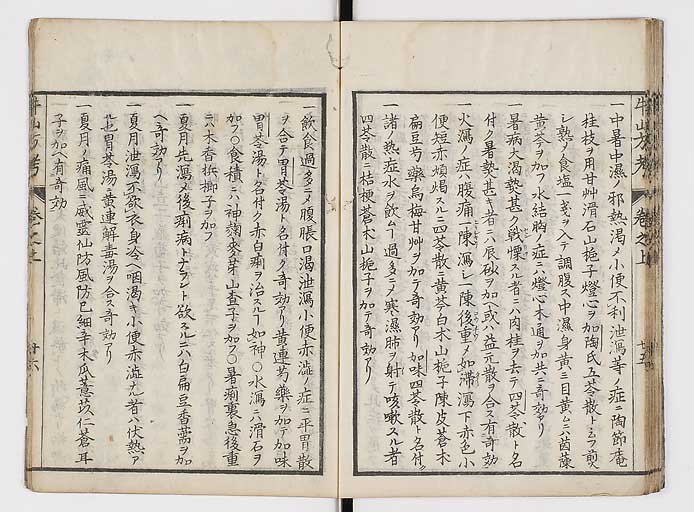 牛山方考 卷之上 廿五
一中暑中濕ノ邪熱渇ノ小便不利泄瀉等ノ症ニ陶節庵
桂枝ヲ用甘艸滑石山梔子燈心ヲ加陶氏五苓散トエフ煎
乄熟ノ食塩一戔ヲ入テ調服ス中濕身黄ニ目黄ムニハ茵蔯
黄芩ヲ加フ水結胸ノ症ニハ燈心木通ヲ加共ニ奇効アリ
一暑病大渇熱甚ク戰慄スル者ニハ肉桂ヲ去テ四苓散ト名
付ク暑熱甚キ者ニハ辰砂ヲ加フ或ハ益元散ヲ合ス有奇効
一火瀉ノ症ハ腹痛一陳瀉乄一陳後重ノ如滞瀉下赤色小
便短赤煩渇スルニ四苓散ニ黄芩白木山梔子陳皮蒼木
扁豆芍藥烏梅甘艸ヲ加テ奇効アリ加味四苓散ト名付
一諸ノ熱症水ヲ飲ム丁過多ニ乄寒濕肺ヲ射テ咳嗽スル者
四苓散ニ桔梗蒼木山梔子ヲ加テ奇効アリ
一飲食過多ニ乄腹脹口渇泄瀉小便赤澁ノ症ニ平胃散
ヲ合テ胃苓湯ト名付ク奇効アリ黄連芍藥ヲ加テ加味
胃苓湯ト名付ク赤白痢ヲ治スル丁如神○水瀉ニハ滑石ヲ
加フ○食積ニハ神麹麥芽山查子ヲ加フ○暑痢裏急後重
ニハ木香梹榔子ヲ加フ
一夏月先瀉乄後痢病トナラント欲スルニハ白扁豆香薷ヲ加
ヘ奇効アリ
一夏月泄瀉不飲衣身冷ヘ咽渇キ小便赤澁ナル者ハ伏熱ア
ル也胃苓湯ニ黄連解毒湯ヲ合ス奇効アリ
一夏月ノ痛風ニ威霊仙防風防已細辛木瓜薏苡仁蒼耳
子ヲ加ヘ有奇効
牛山方考 卷之上 廿六